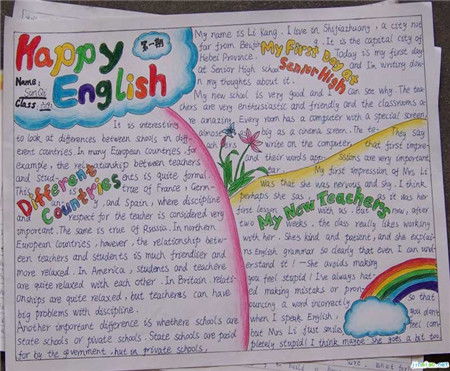 Happy
English
第一期
Name:
Class:
My First Day at
Senior High
My name is Li Kang. I live in Shijiazhuang, a city not
far from It is the capital city of
Hebei Province. Today is my first day
at Senior High school and I'm writing down
my thoughts about it.
My new school is very good and I can see why. The tea
chers are very enthusiastic and friendly and the classrooms a
re amazing. Every room has a computer with a special screen,
almost as big as a cinema screen. The te They say
write on the computer that first impre
and their words ap ssions are very important
My first impression of Mrs Li
was that she was nervous and shy. I think
perhaps she was as it was her
first lesson with us. But now, after
two weeks, the class really likes working
with her. She's kind and patient, and she explai
ns English grammar so clearly that even I can und
erstand it! She avoids making
you feel stupid! I've always hat
ed making mistakes or pron
ouncing a word incorrectly
when I speak English, so that
but Mrs Li just smiles you don't
feel com
pletely stupid! I think maybe she goes a bit too
My New Teachers
Different
Countries
It is interesting
to look at differences between schools in diff
erent countries. In many European countries, for
example, the relationship between teachers
and stud ents is quite formal.
This is true of France, Germ
any, and Spain, where discipline
and respect for the teacher is considered very
important. The same is true of Russia. In northern
European countries, however, the relationship betw
een teachers and students is much friendlier and
more relaxed. In America, students and teachers
are quite relaxed with each other. In Britain, relati
onships are quite relaxed, but teachers can have
big problems with discipline.
Another important difference is whethere schools are
state schools or private schools. State schools are paid
for by the government, but in private schools,